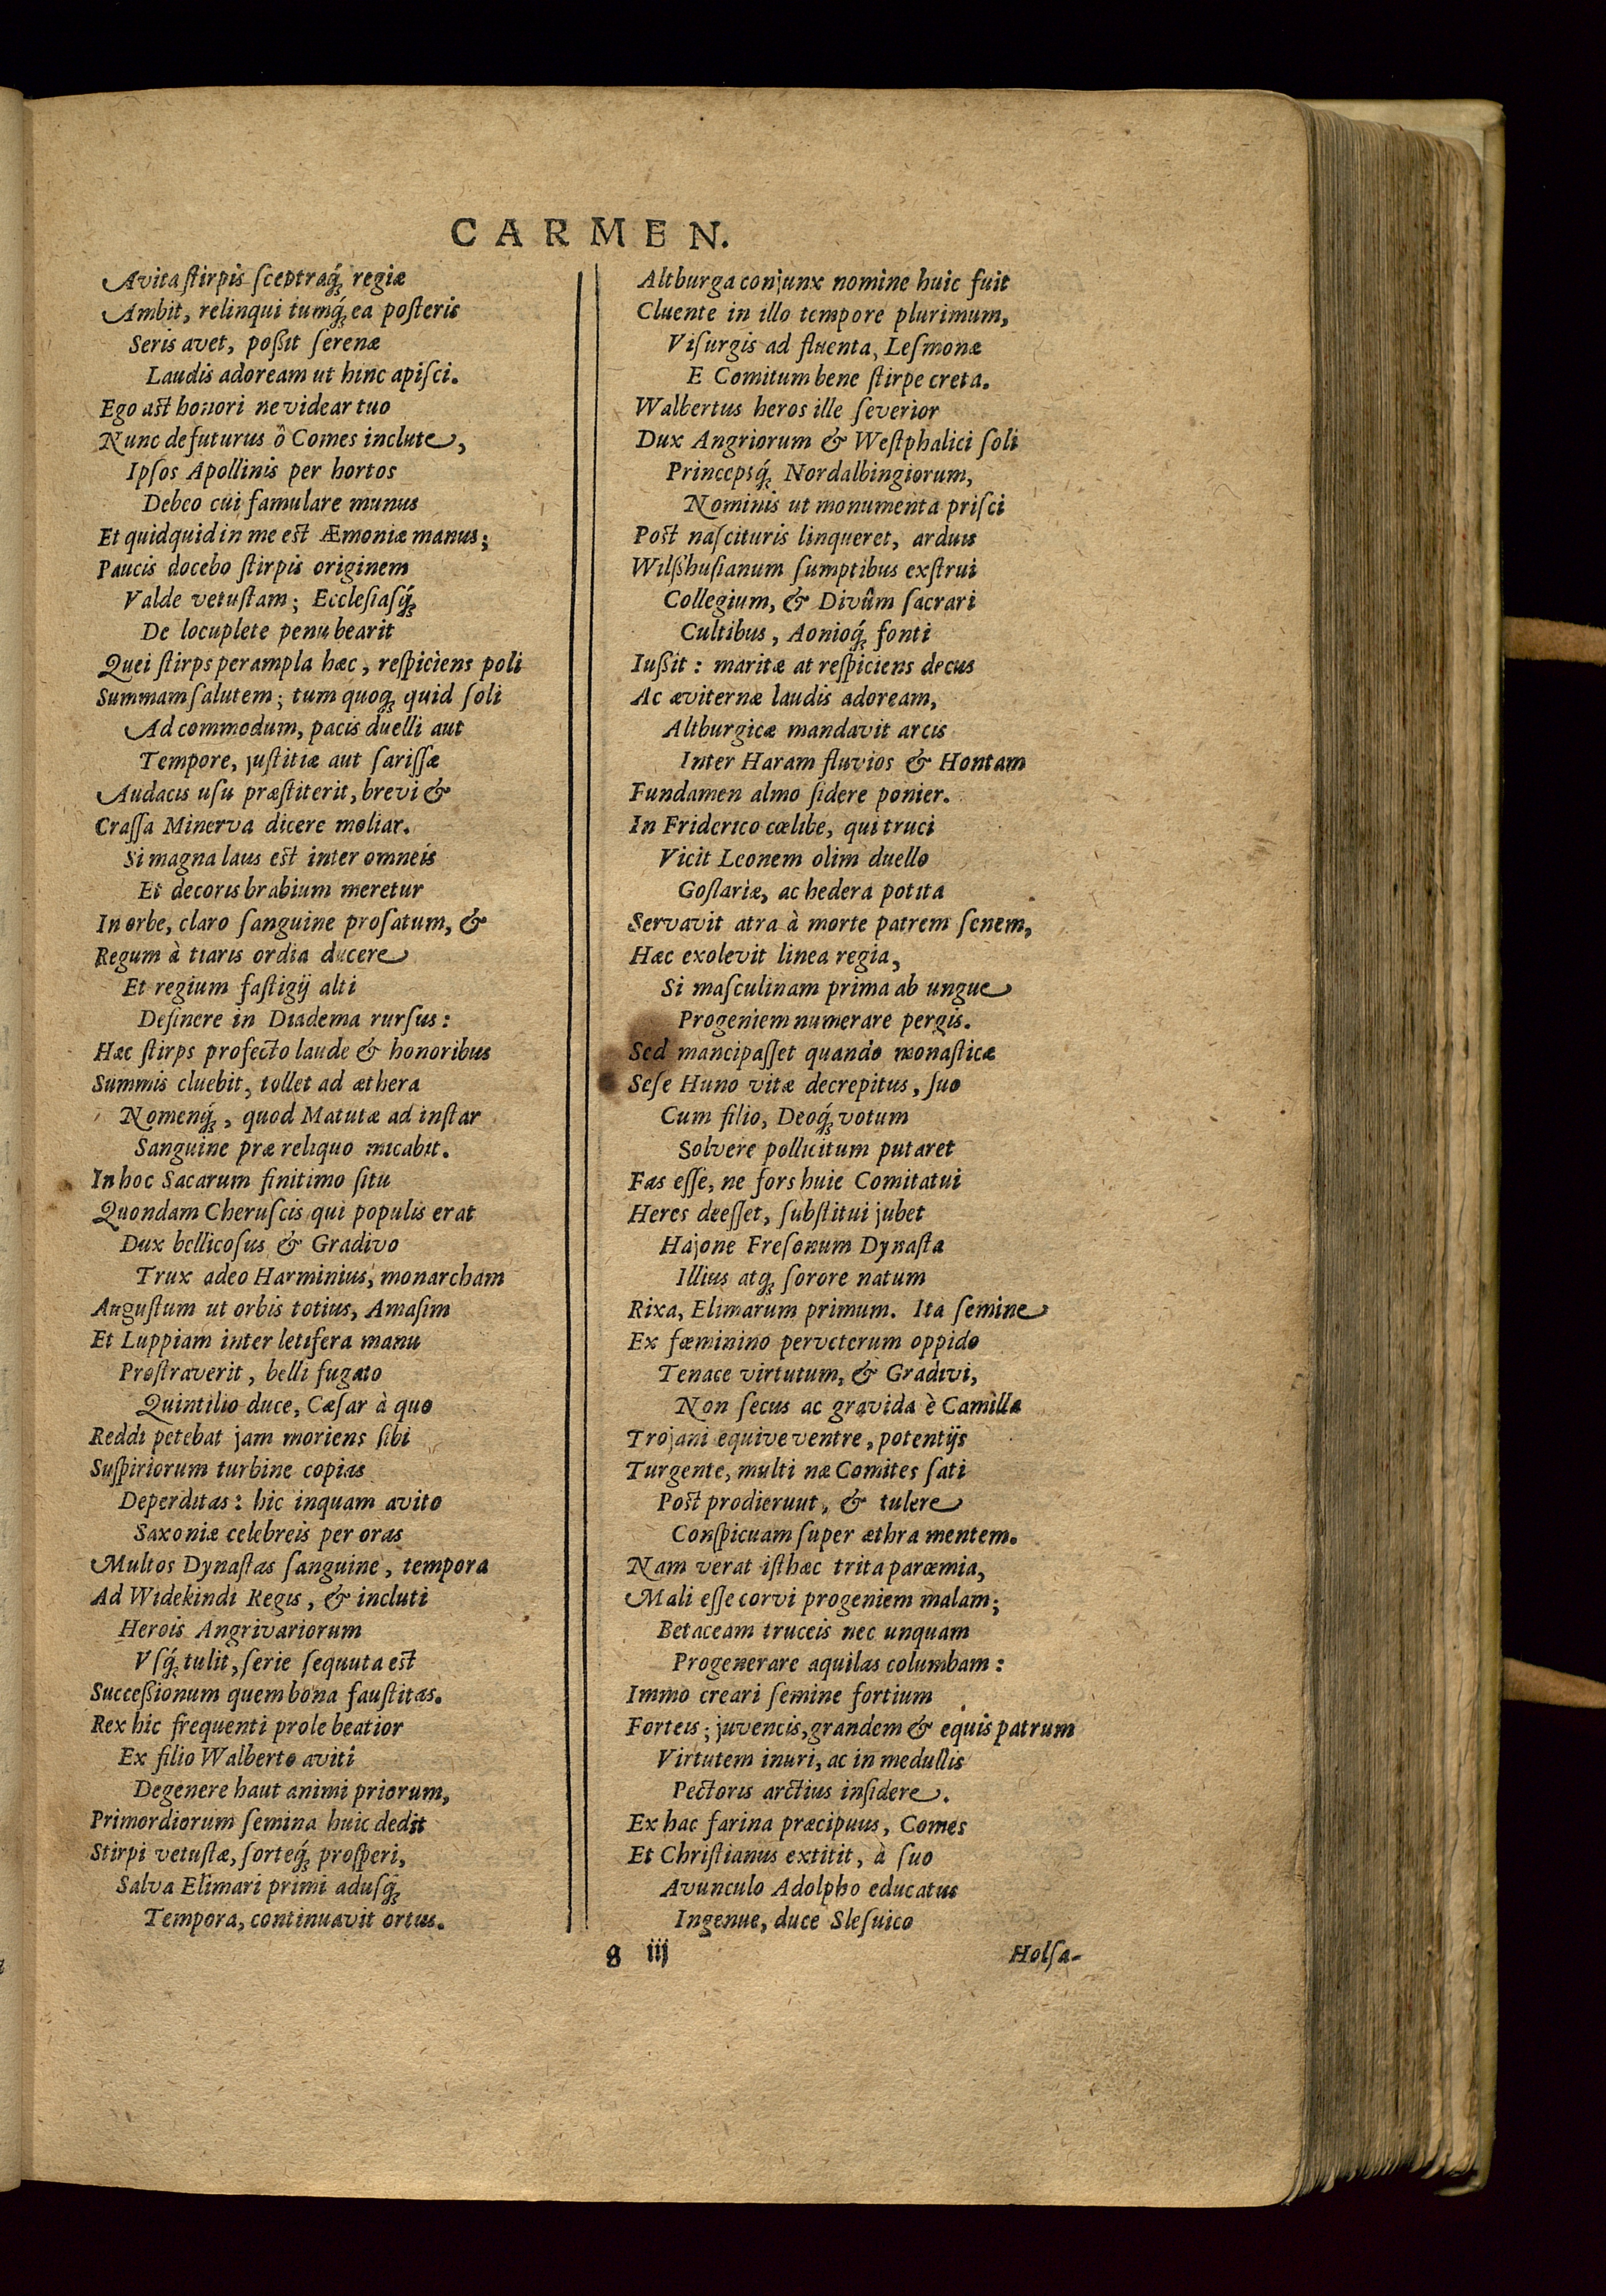 CARMEN.
Avita stirpis sceptraq́ꝫ regiæ
Ambit, relinqui tumq́ꝫ ea posteris
Seris avet, poßit serenæ
Laudis adoream ut hinc apisci.
Ego ast honori ne videar tuo
Nunc defuturus ô Comes inclute,
Ipsos Apollinis per hortos
Debeo cui famulare munus
Et quidquid in me est Æmoniæ manus;
Paucis docebo stirpis originem
Valde vetustam; Ecclesiasq́ꝫ
De locuplete penu bearit
Quei stirps perampla hæc, respiciens poli
Summam salutem; tum quoqꝫ quid soli
Ad commodum, pacis duelli aut
Tempore, justitiæ aut sarissæ
Audacis usu præstiterit, brevi &
Crassa Minerva dicere moliar.
Si magna laus est inter omneis
Et decoris brabium meretur
In orbe, claro sanguine prosatum, &
Regum à tiaris ordia ducere
Et regium fastigij alti
Desinere in Diadema rursus:
Hæc stirps profecto laude & honoribus
Summis cluebit, tollet ad æthera
Nomenq́ꝫ, quod Matutæ ad instar
Sanguine præ reliquo micabit.
In hoc Sacarum finitimo situ
Quondam Cheruscis qui populis erat
Dux bellicosus & Gradivo
Trux adeo Harminius, monarcham
Augustum ut orbis totius, Amasim
Et Luppiam inter letifera manu
Prostraverit, belli fugato
Quintilio duce, Cæsar à quo
Reddi petebat jam moriens sibi
Suspiriorum turbine copias
Deperditas: hic inquam avito
Saxoniæ celebreis per oras
Multos Dynastas sanguine, tempora
Ad Widekindi Regis, & incluti
Herois Angrivariorum
Vsq́ꝫ tulit, serie sequuta est
Succeßionum quem bona faustitas.
Rex hic frequenti prole beatior
Ex filio Walberto aviti
Degenere haut animi priorum,
Primordiorum semina huic dedit
Stirpi vetustæ, sorteq́ꝫ prosperi,
Salva Elimari primi adusq́ꝫ
Tempora, continuavit ortus.
Altburga conjunx nomine huic fuit
Cluente in illo tempore plurimum,
Visurgis ad fluenta, Lesmonæ
E Comitum bene stirpe creta.
Walbertus heros ille severior
Dux Angriorum & Westphalici soli
Princepsq́ꝫ Nordalbingiorum,
Nominis ut monumenta prisci
Post nascituris linqueret, arduis
Wilßhusianum sumptibus exstrui
Collegium, & Divûm sacrari
Cultibus, Aonioq́ꝫ fonti
Iußit: maritæ at respiciens decus
Ac æviternæ laudis adoream,
Altburgicæ mandavit arcis
Inter Haram fluvios & Hontam
Fundamen almo sidere ponier.
In Friderico cœlibe, qui truci
Vicit Leonem olim duello
Goslariæ, ac hedera potita
Servavit atra à morte patrem senem,
Hæc exolevit linea regia,
Si masculinam prima ab ungue
Progeniem numerare pergis.
Sed mancipasset quando monasticæ
Sese Huno vitæ decrepitus, suo
Cum filio, Deoq́ꝫ votum
Solvere pollicitum putaret
Fas esse, ne fors huic Comitatui
Heres deesset, substitui jubet
Hajone Fresonum Dynasta
Illius atqꝫ sorore natum
Rixa, Elimarum primum. Ita semine
Ex fæminino perveterum oppido
Tenace virtutum, & Gradivi,
Non secus ac gravida è Camilla
Trojani equive ventre, potentijs
Turgente, multi næ Comites sati
Post prodierunt, & tulere
Conspicuam super æthra mentem.
Nam verat isthæc trita parœmia,
Mali esse corvi progeniem malam;
Betaceam truceis nec unquam
Progenerare aquilas columbam:
Immo creari semine fortium
Forteis; juvencis, grandem & equis patrum
Virtutem inuri, ac in medullis
Pectoris arctius insidere.
Ex hac farina præcipuus, Comes
Et Christianus extitit, à suo
Avunculo Adolpho educatus
Ingenue, duce Slesuico
g iij
Holsa-